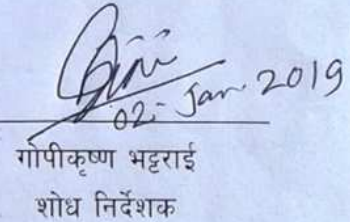 02-Jan-2019
गोपीकृष्ण भट्टराई
शोध निर्देशक